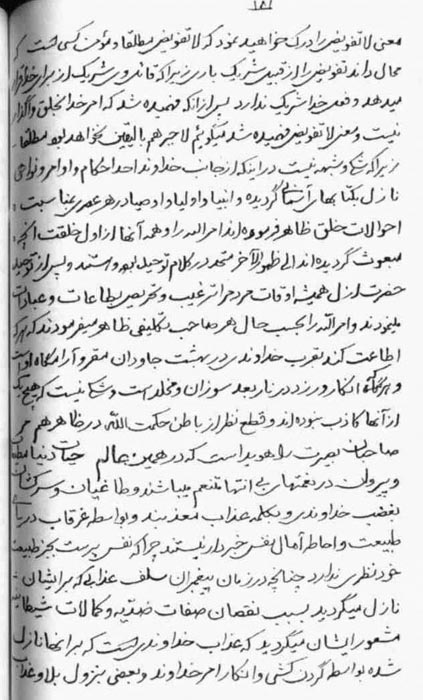 ۱۸۱
معنی لا تفویض را درک خواهید نمود که لا تفویض مطلقا و مؤمن کسی است که
محال داند تفویض را از قبیل شریک باری زیرا که قائل و شریک از برای خدا قرار
میدهد و فعل خدا شریک ندارد پس از آنکه فهمیده شد که امر خدا بخلق واگذار
نیست و معنی لا تفویض فهمیده شد میگوئیم لا جبر هم بالیقین نخواهد بود مطلقا
زیرا که شک و شبهه نیست در اینکه از جانب خداوند احد احکام و اوامر و نواهی
نازل بکتابهای آسمانی گردیده و انبیا و اولیا و اوصیا در هر عصری بمناسبت
احوالات خلق ظاهر فرموده اند امر الله را و همه آنها از اول خلقت آنچه
مبعوث گردیده اند الی ظهور الآخر متحد در کلام توحید بوده و هستند و پس از توحید
حضرت ازل همیشه اوقات مردم را ترغیب و تحریص بطاعات و عبادات
مینمودند و امر الله را بحسب حال هر صاحب تکلیفی ظاهر میفرمودند که هر که
اطاعت کند بقرب خداوندی در بهشت جاودان مقر و آرامگاه او است
و هر که انکار ورزد در نار بعد سوزان و مخلد است و شک نیست که هیچیک
از آنها کاذب نبوده اند و قطع نظر از باطن حکمت الله در ظاهر هم بر
صاحبان بصیرت را هویدا است که در همین عالم حیات دنیا مطیعان
و پیروان در نعمتهای بی انتها متنعم میباشند و طاغیان و سرکشان
بغضب خداوندی و بکلمه عذاب معذبند و بواسطه غرقاب دریای
طبیعت و احاطه آمال نفس خبردار نیستند چرا که نفس پرست بجز طبیعت
خود نظری ندارد چنانچه در زمان پیغمبران سلف عذابی که بر ایشان
نازل میگردید بسبب نقصان صفات ضدیه و کمالات شیطانیه
مشعور ایشان میگردید که عذاب خداوندی است که بر آنها نازل
شده بواسطه گردن کشی و انکار امر خداوند و بعضی بنزول بلا و عذاب